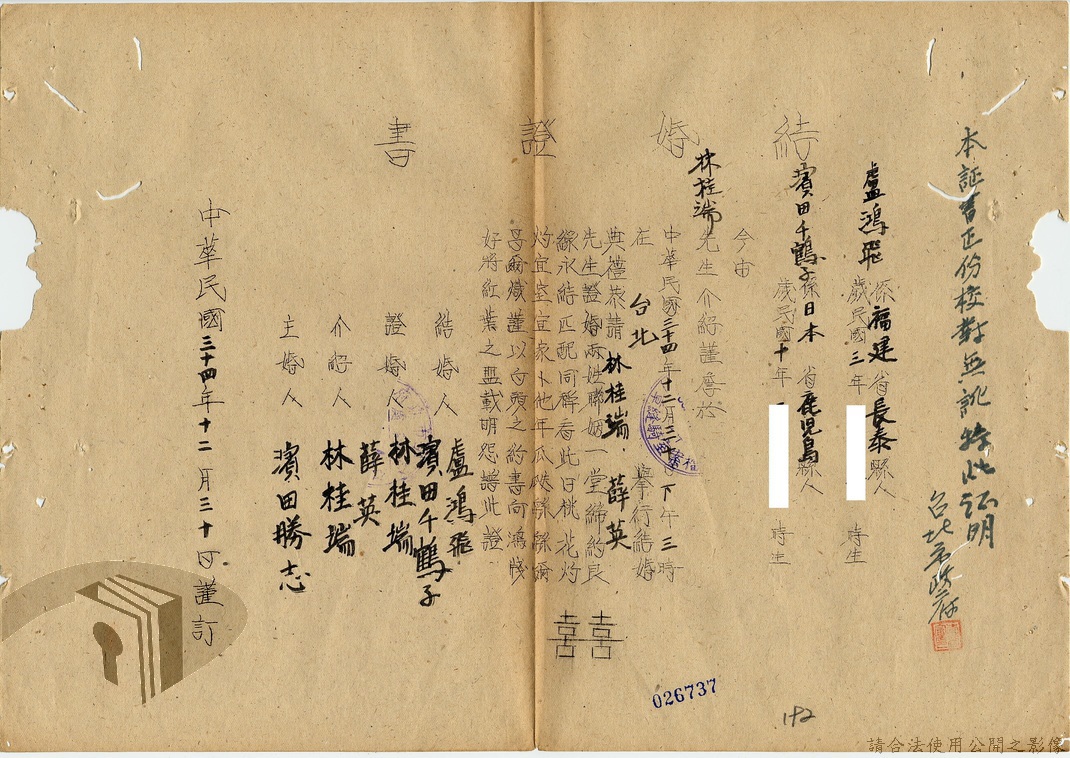 本証書正份校對無訛特此証明
台北市政府
結婚證書
盧鴻飛係福建省長泰縣人
歲民國三年 時生
濱田千鶴子係日本省鹿児島縣人
歲民國十年 時生
今由
林桂端先生介紹謹詹於
中華民國三十四年十二月三十日下午三時
在台北 舉行結婚
典禮恭請林桂端 薛英
先生證婚兩姓聯姻一堂締約良
緣永結匹配同稱看此日桃花灼
灼宜室宜家卜他年瓜瓞緜緜爾
昌爾熾謹以白頭之約書向鴻牋
好將紅葉之盟載明鴛譜此證
囍
結婚人 盧鴻飛
濱田千鶴子
證婚人 林桂端
薛英
介紹人 林桂端
主婚人 濱田勝志
中華民國三十四年十二月三十日謹訂
026737
192
請合法使用公開之影像